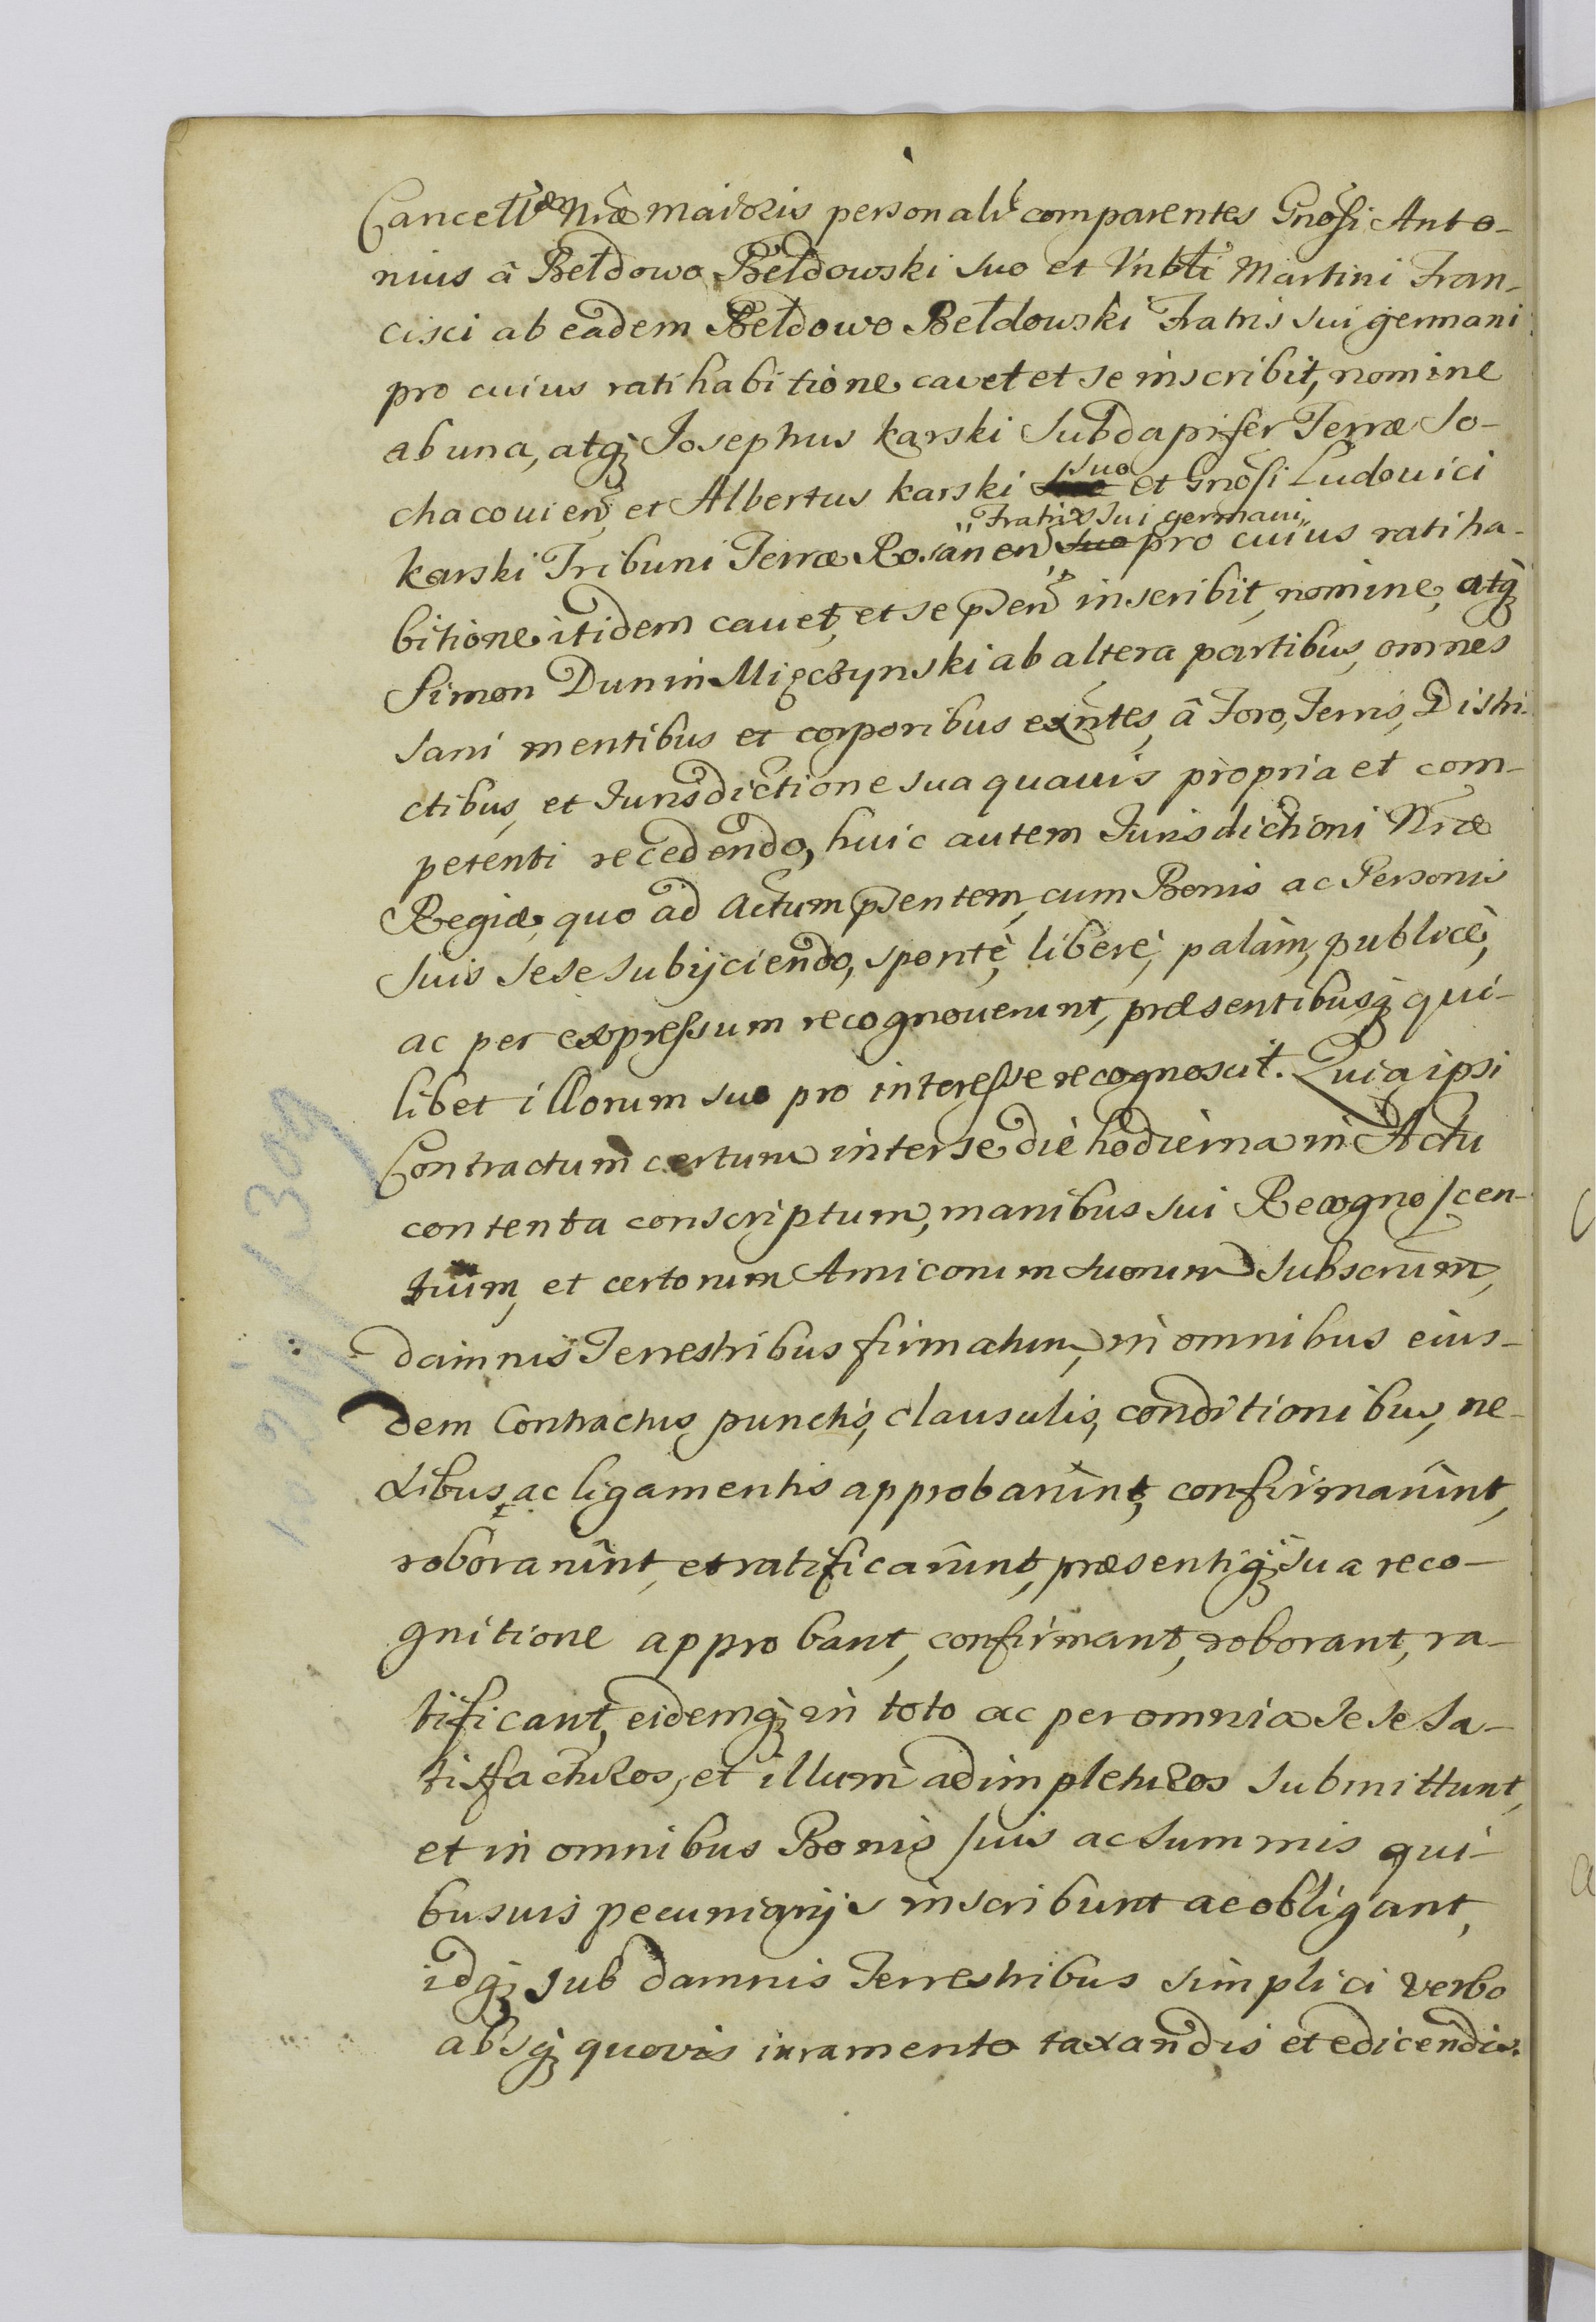 Cancellae Nrae maioris personalr comparentes Gnosi Anto-
nius â Bełdowo Bełdowski suo et Vnbli Martini Fran-
cisci ab eadem Bełdowo Bełdowski Fratris sui germani
pro cuius ratihabitione cavet et se inscribit, nomine
ab una, atq Josephus Karski Subdapifer Terrae So-
chacouien, et Albertus Karski suo et Gnosi Ludouici
Fratris sui germani
Karski Tribuni Terrae Rosanen, suo pro cuius ratiha-
bitione itidem cauet, et se psen inscribit, nomine, atq
Simon Dunin Mięczynski ab altera partibus, omnes
sani mentibus et corporibus exntes, â Foro, Terris, Distri-
ctibus, et Jurisdictione sua quauis propria et com-
petenti recedendo, huic autem Jurisdictioni Nrae
Regiae, quo ad Actum psentem, cum Bonis ac Personis
suis sese subijciendo, spontè, liberè, palàm, publicè,
ac per expressum recognouerunt, praesentibusq qui-
libet illorum suo pro interesse recognoscit. Quia ipsi
Contractum certum inter se die hodierna in Actu
contenta conscriptum, manibus sui Recognoscen-
tium, et certorum Amicorum suorum subscrium,
damnis Terrestribus firmatum, in omnibus eius-
dem Contractus punctis, clausulis, conditionibus, ne-
xibus, ac ligamentis approbarunt, confirmarunt,
roborarunt, et ratificarunt, praesentiq sua reco-
gnitione approbant, confirmant, roborant, ra-
tificant, eidemq in toto ac per omnia sese sa-
tisfacturos, et illum adimpleturos submittunt,
et in omnibus Bonis suis ac summis qui-
busuis pecuniarijs inscribunt ac obligant,
idq sub damnis Terrestribus simplici verbo
absq quovis iuramento taxandis et edicendis.